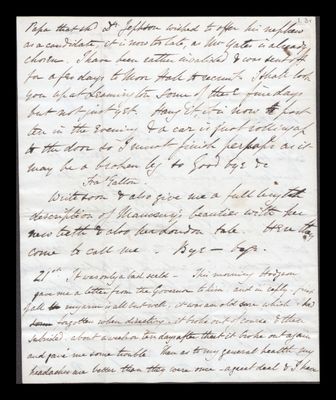 Papa that sd Dr Jephson wished to offer his nephew
as a candidate, it is now too late, as Mr Yates is already
chosen. I have been rather invalided & was sent off
for a few days to Moor Hall to recruit. I shall look
you up at Leamington some of these fine days
but not just yet. Hang it, it is now past
ten in the Evening & a car is just
to the door so I must finish perhaps as it
may be a broken leg so Good bye &c
Fra Galton.
Write soon & also give me a full length
description of beauties with her
new teeth & also her London tale. Here they
come to call me. Bye - bye.
21st It was only a bad scald - This morning Hodgson
gave me a letter from the Governor to him and in reply,
my arm is all but well, it was an old which
forgotten when directly it broke out & then
subsided. about a week or ten days after that it broke out again
and gave me some trouble. Then as to my general health my
headaches are better than they were once - a great deal & I have